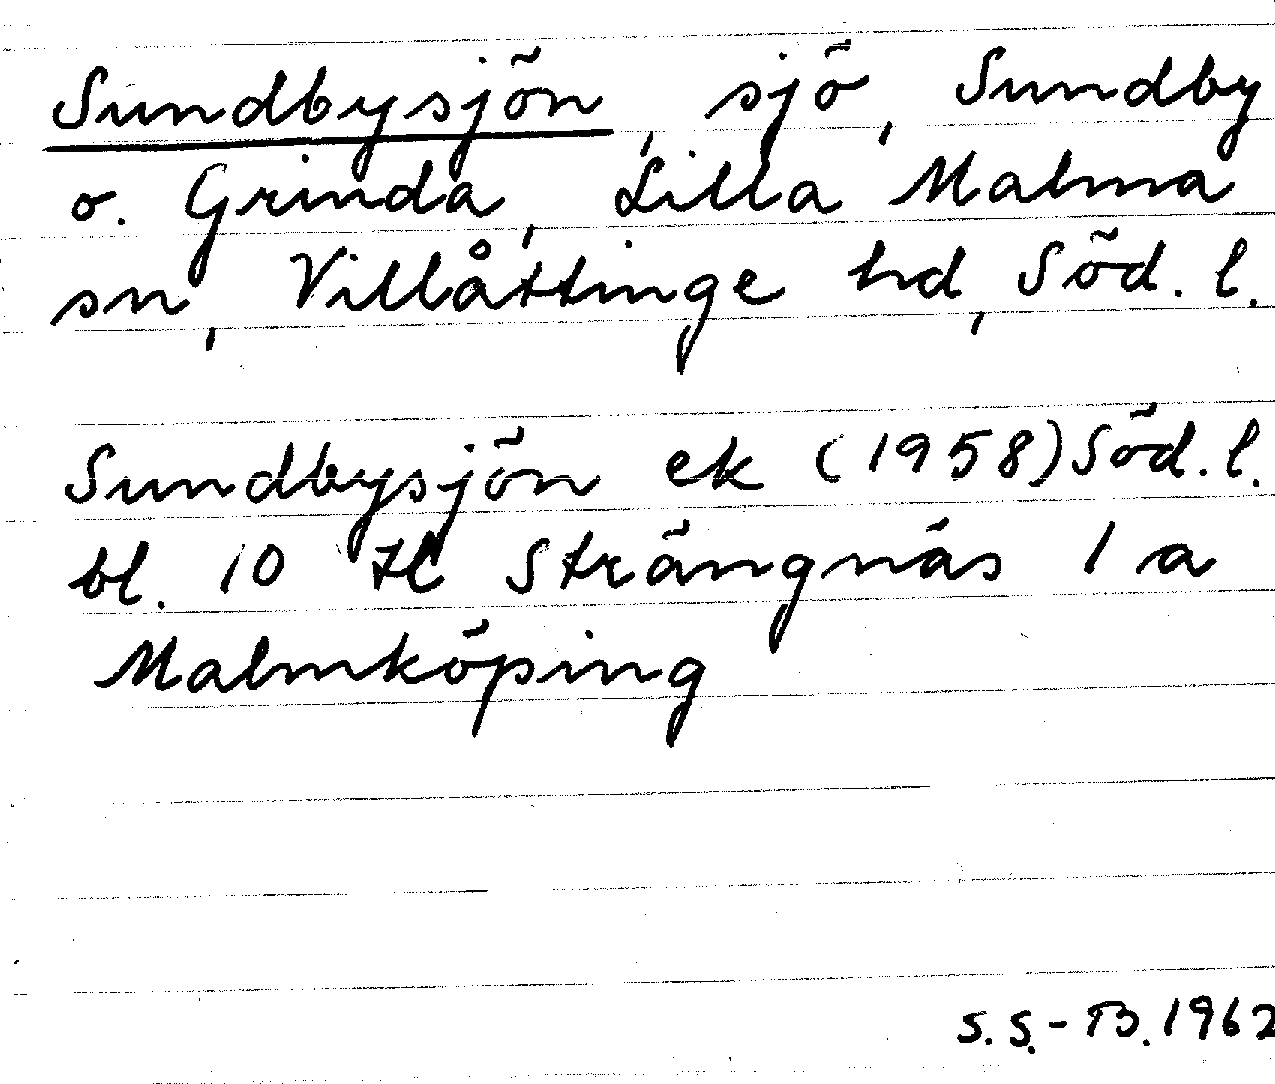 Sundbysjön, sjö, Sundby
o. Grinda, Lilla Malma
sn, Villåttinge hd, Söd. l.
Sundbysjön ek (1958) Söd. l.
bl. 10 H Strängnäs 1 a
Malmköping
S.S.-B. 1962